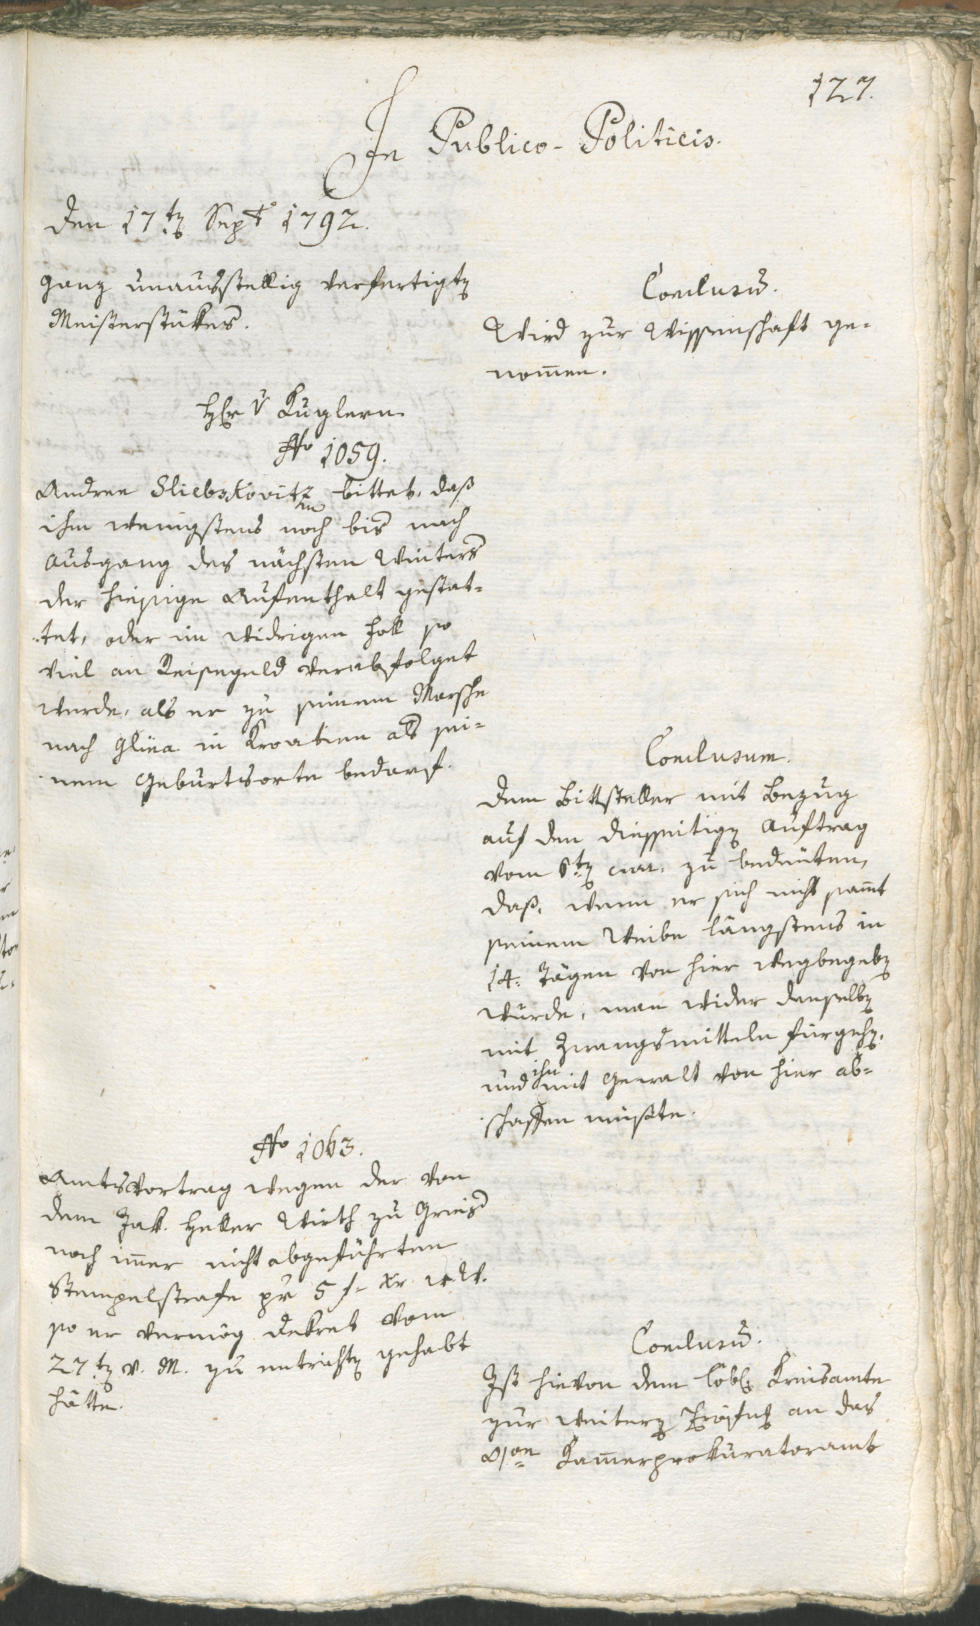 127.
In Publico-Politicis.
Den 17tn Sept 1792.
ganz unausstellig verfertigtn
Meisterstükes.
Conclusum.
Wird zur Wissenschaft ge-
nom̅en.
Hr v Kuglern
No 1059.
Andree Sliebskovitz bittet, daß
ihm wenigstens noch bis nach
Ausgang des nächsten Winters
der hiesige Aufenthalt gestat-
tet, oder im widrigen Fall so
viel an Reisegeld verabfolget
werde, als er zu seinem Marsche
nach Glina in Kroatien als sei-
nem Geburtsorte bedarf.
Conclusum.
Dem Bittsteller mit Bezug
auf den diesseitign Auftrag
vom 6tn cur. zu bedeuten,
daß, wenn er sich nicht sam̅t
seinem Weibe längstens in
14. Tägen von hier wegbegebn
würde, man wider denselbn
mit Zwangsmitteln fürgehn,
und ihn mit Gewalt von hier ab-
schaffen müßte.
No 1063.
Amtsvortrag wegen der von
dem Jak. Heller Wirth zu Gries
noch im̅er nicht abgeführten
Stempelstrafe pr 5 f - xr
so er vermög Dekret vom
27tn v. M. zu entrichtn gehabt
hätte.
Conclusum.
Ist hievon dem löbl Kreisamte
zur weitern Eröfng an das
Kam̅erprokuratoramt